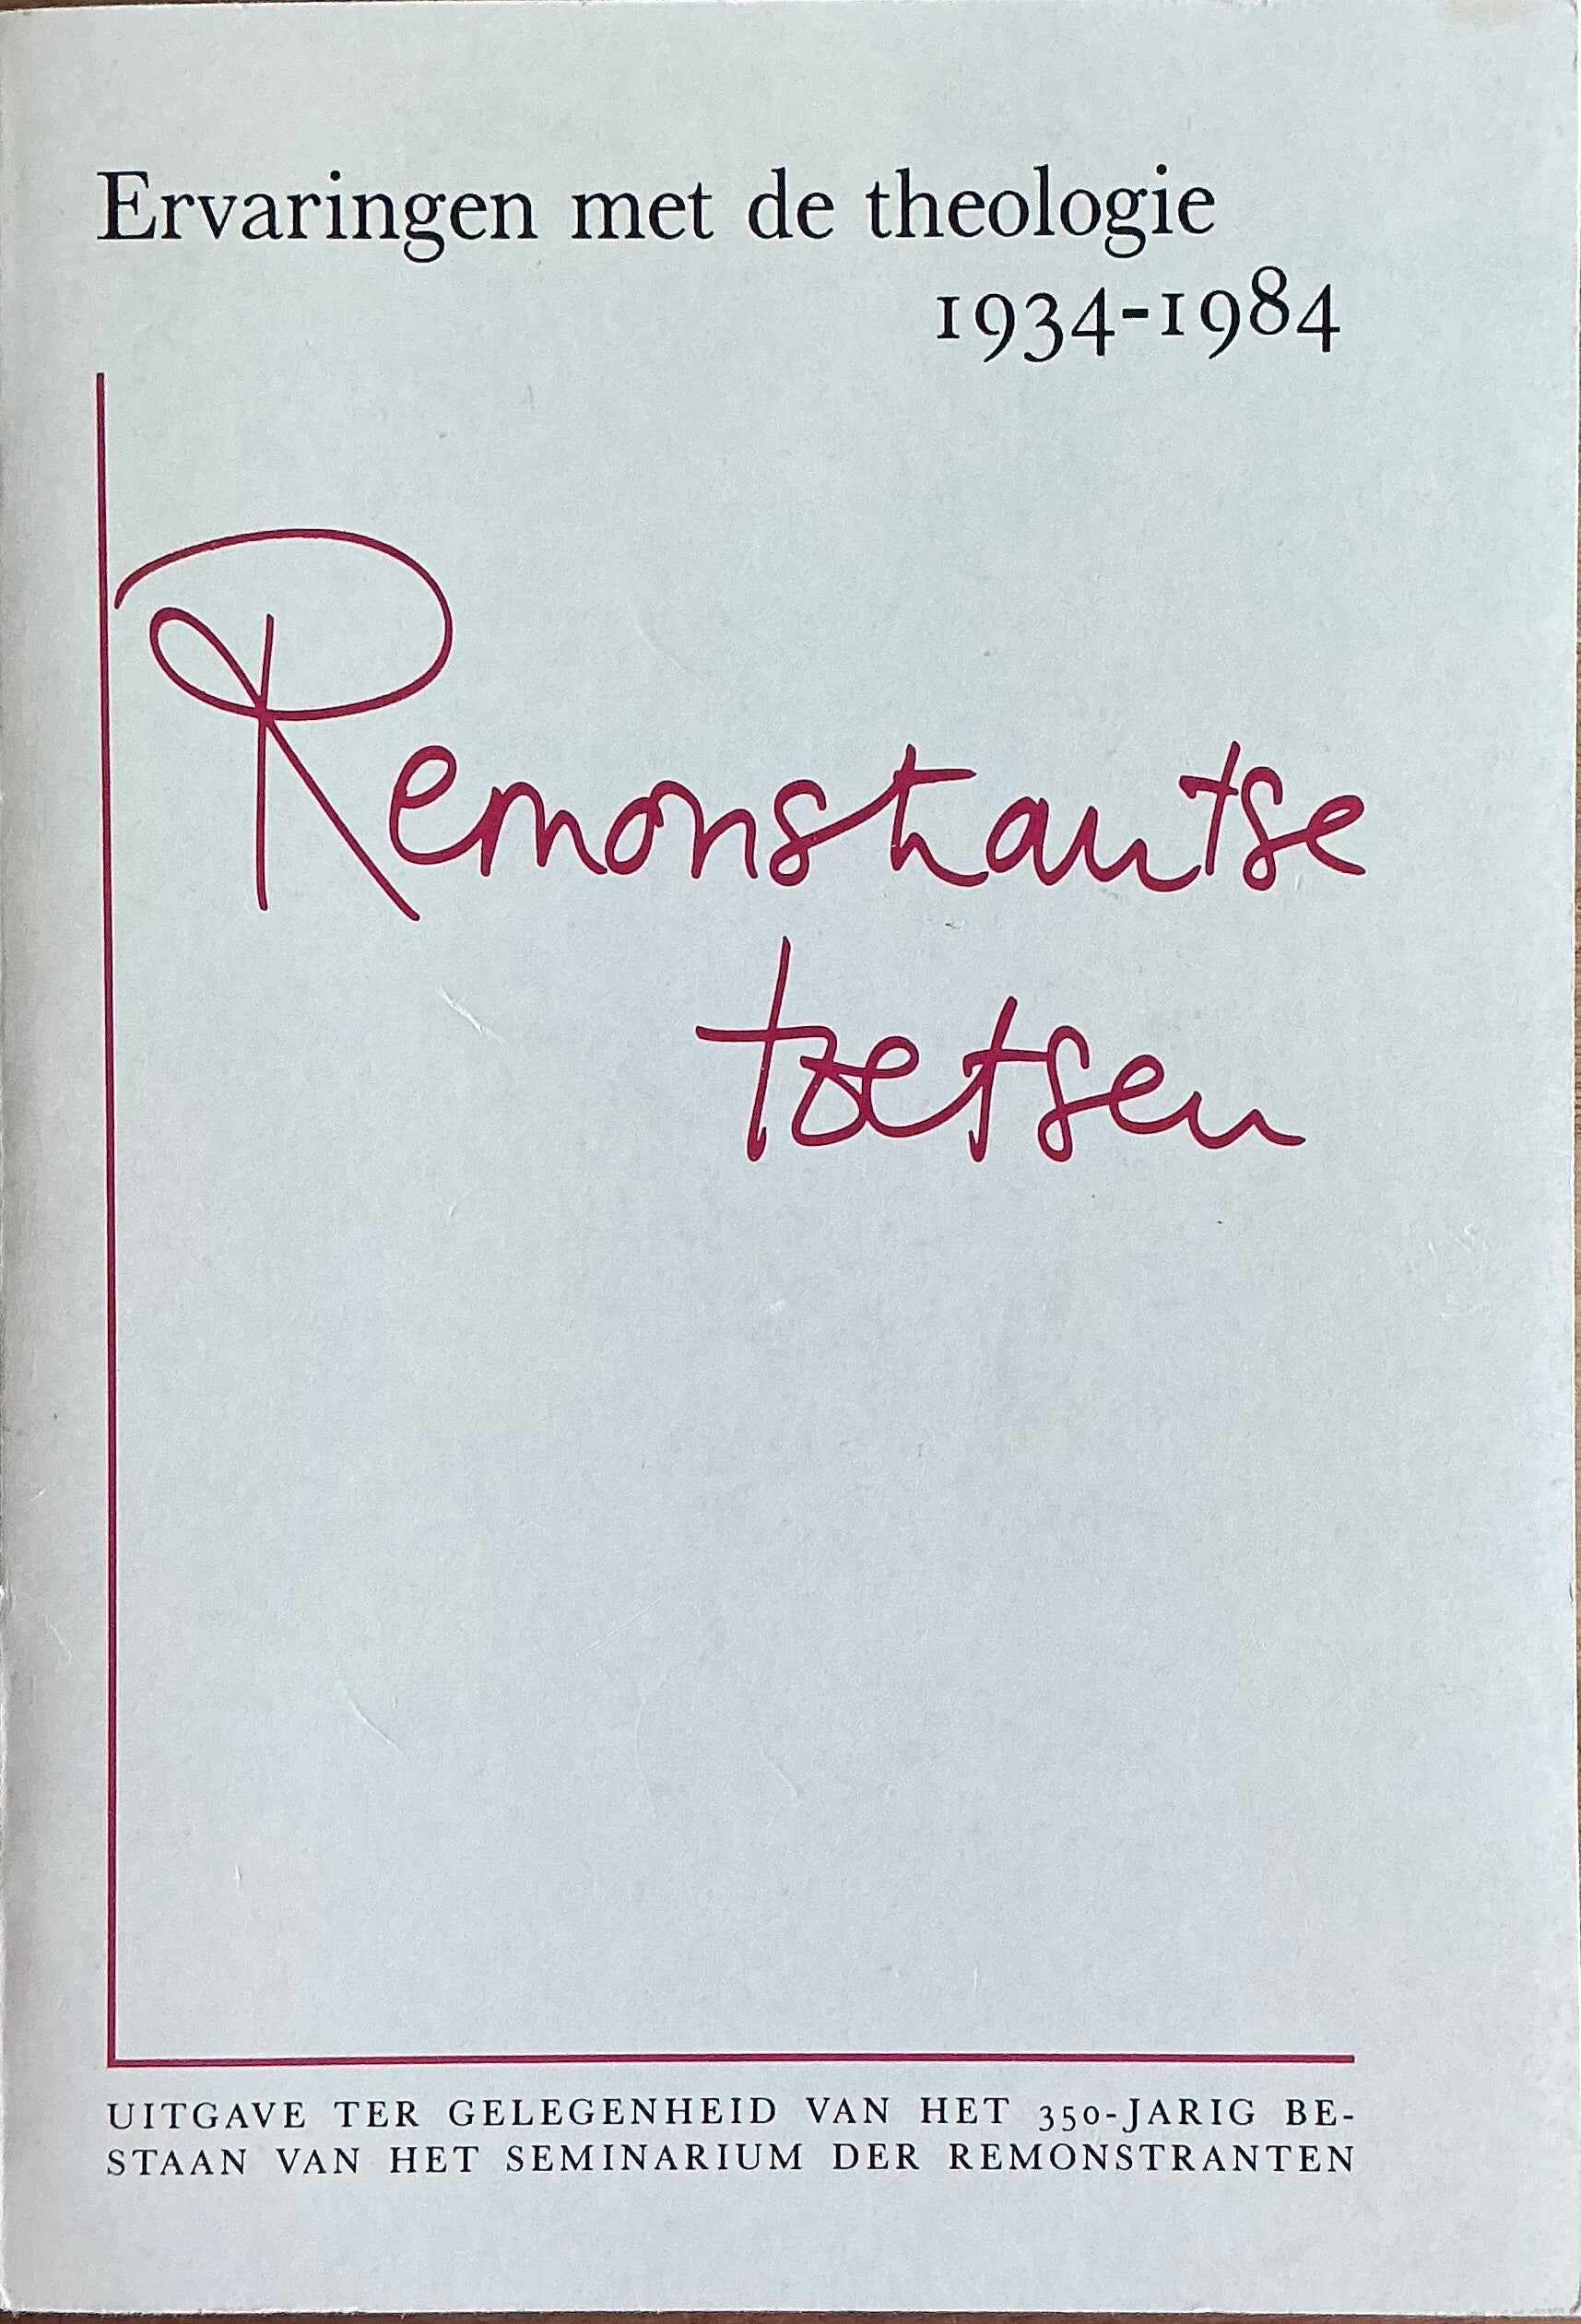 Ervaringen met de theologie
1934-1984
Remonstrantse
toetsen
UITGAVE TER GELEGENHEID VAN HET 350-JARIG BE-
STAAN VAN HET SEMINARIUM DER REMONSTRANTEN